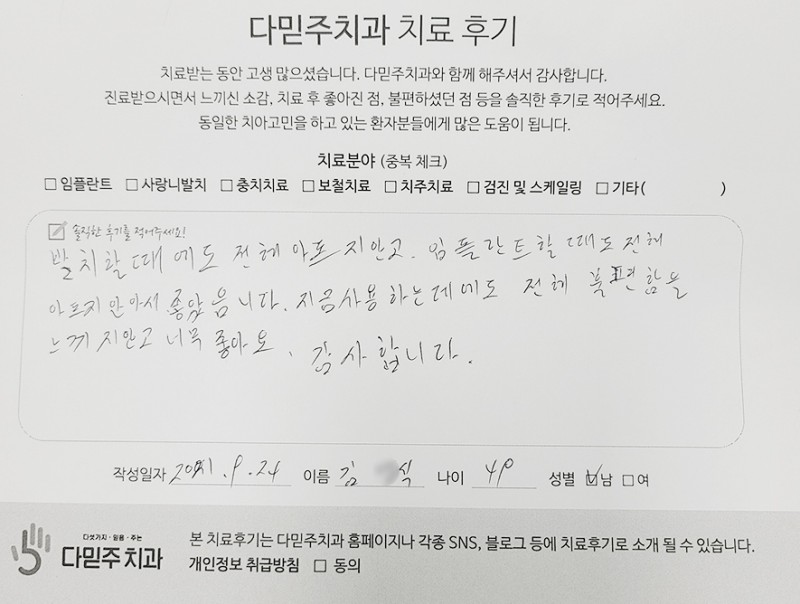 다믿주치과 치료 후기
치료받는 동안 고생 많으셨습니다. 다믿주치과와 함께 해주셔서 감사합니다.
진료받으시면서 느끼신 소감, 치료 후 좋아진 점, 불편하셨던 점 등을 솔직한 후기로 적어주세요.
동일한 치아고민을 하고 있는 환자분들에게 많은 도움이 됩니다.
치료분야 (중복 체크)
☐ 임플란트 ☐ 사랑니발치 ☐ 충치치료 ☐ 보철치료 ☐ 치주치료 ☐ 검진 및 스케일링 ☐ 기타( )
솔직한 후기를 적어주세요!
발치할때에도 전혜 아프지안고. 임플란트할때도 전혜
아프지안아서 좋았음니다. 지금사용하는데에도 전혜 불편함을
느끼지안고 너무 좋아요. 감사합니다.
작성일자 2021.9.24 이름 김 석 나이 49 성별 ☑남 ☐여
다섯가지·믿음·주는
다믿주치과
본 치료후기는 다믿주치과 홈페이지나 각종 SNS, 블로그 등에 치료후기로 소개 될 수 있습니다.
개인정보 취급방침 ☐ 동의